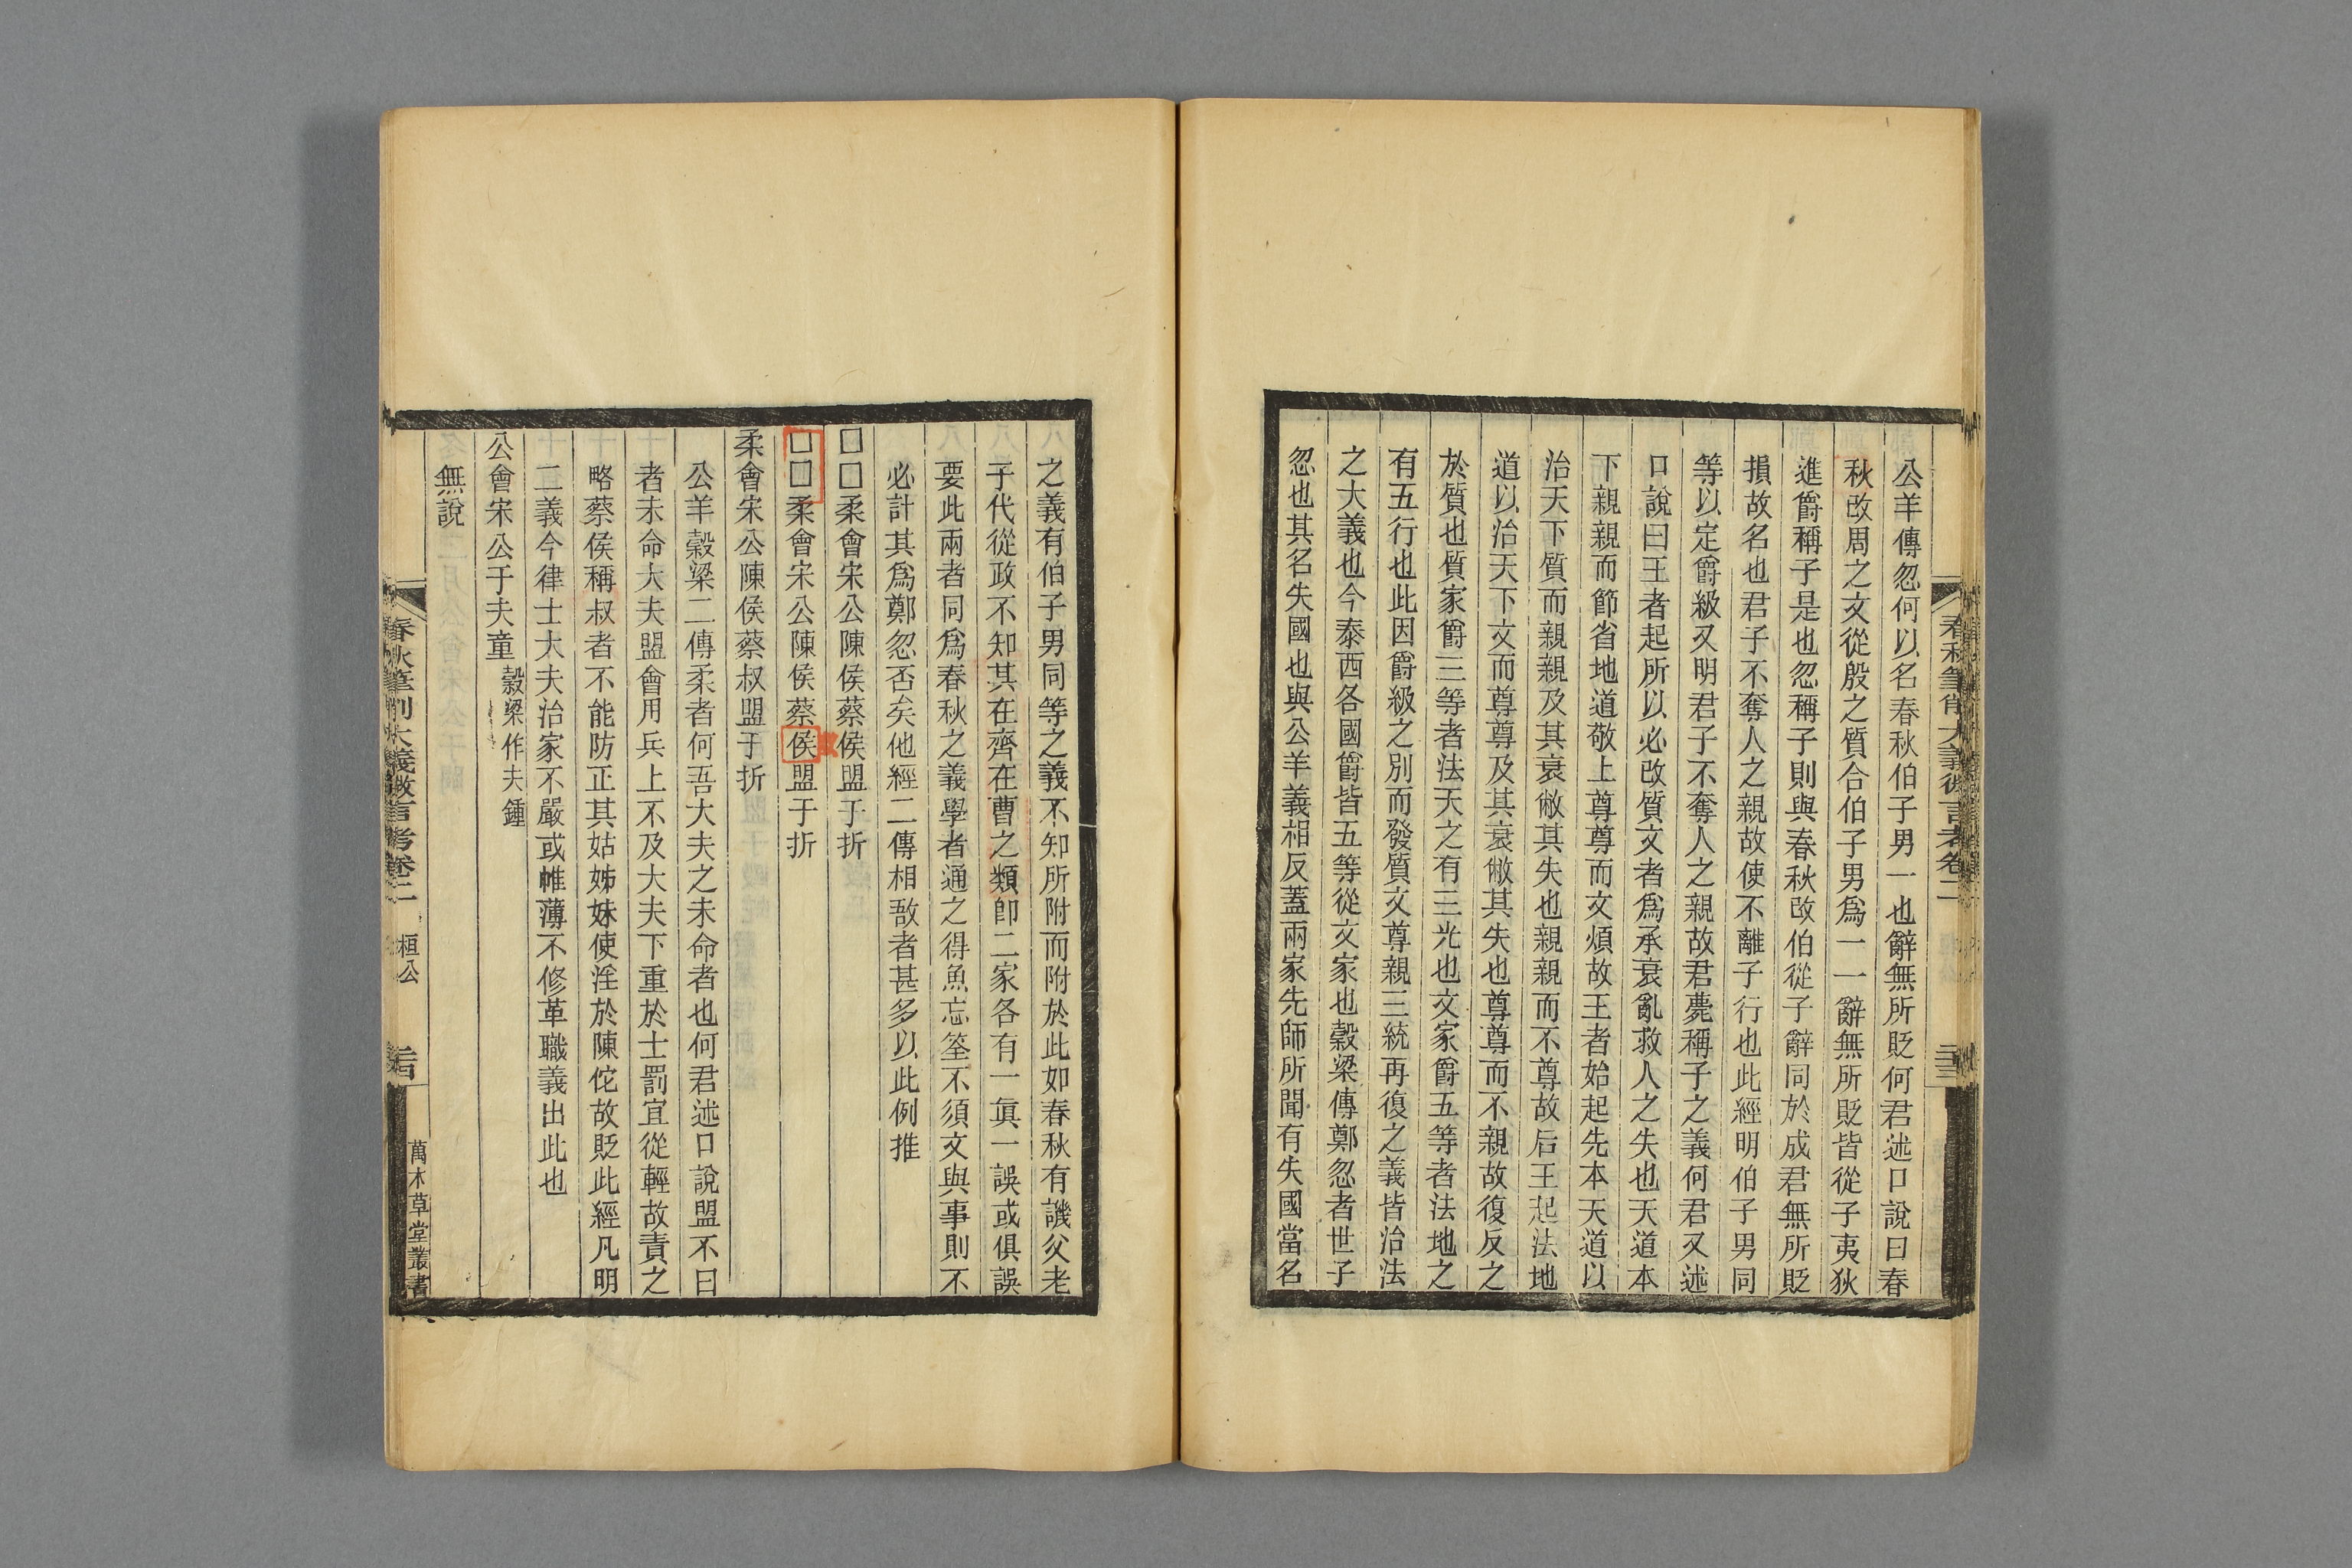 春秋筆削大義微言考卷二
公羊傳忽何以名春秋伯子男一也辭無所貶何君述口說曰春
秋改周之文從殷之質合伯子男爲一一辭無所貶皆從子夷狄
進爵稱子是也忽稱子則與春秋改伯從子辭同於成君無所貶
損故名也君子不奪人之親故使不離子行也此經明伯子男同
等以定爵級又明君子不奪人之親故君薨稱子之義何君又述
口說曰王者起所以必改質文者爲承衰亂救人之失也天道本
下親親而節省地道敬上尊尊而文煩故王者始起先本天道以
治天下質而親親及其衰敝其失也親親而不尊故后王起法地
道以治天下文而尊尊及其衰敝其失也尊尊而不親故復反之
於質也質家爵三等者法天之有三光也文家爵五等者法地之
有五行也此因爵級之別而發質文尊親三統再復之義皆治法
之大義也今泰西各國爵皆五等從文家也穀梁傳鄭忽者世子
忽也其名失國也與公羊義相反蓋兩家先師所聞有失國當名
之義有伯子男同等之義不知所附而附於此如春秋有譏父老
子代從政不知其在齊在曹之類卽二家各有一眞一誤或俱誤
要此兩者同爲春秋之義學者通之得魚忘筌不須文與事則不
必計其爲鄭忽否矣他經二傳相敔者甚多以此例推
□□柔會宋公陳侯蔡侯盟于折
□□柔會宋公陳侯蔡侯盟于折
柔會宋公陳侯蔡叔盟于折
公羊穀梁二傳柔者何吾大夫之未命者也何君述口說盟不曰
者未命大夫盟會用兵上不及大夫下重於士罰宜從輕故責之
略蔡侯稱叔者不能防正其姑姊妹使淫於陳佗故貶此經凡明
二義今律士大夫治家不嚴或帷薄不修革職義出此也
公會宋公于夫童 穀梁作夫鍾
無說
春秋筆削大義微言考卷二 桓公
萬木草堂叢書